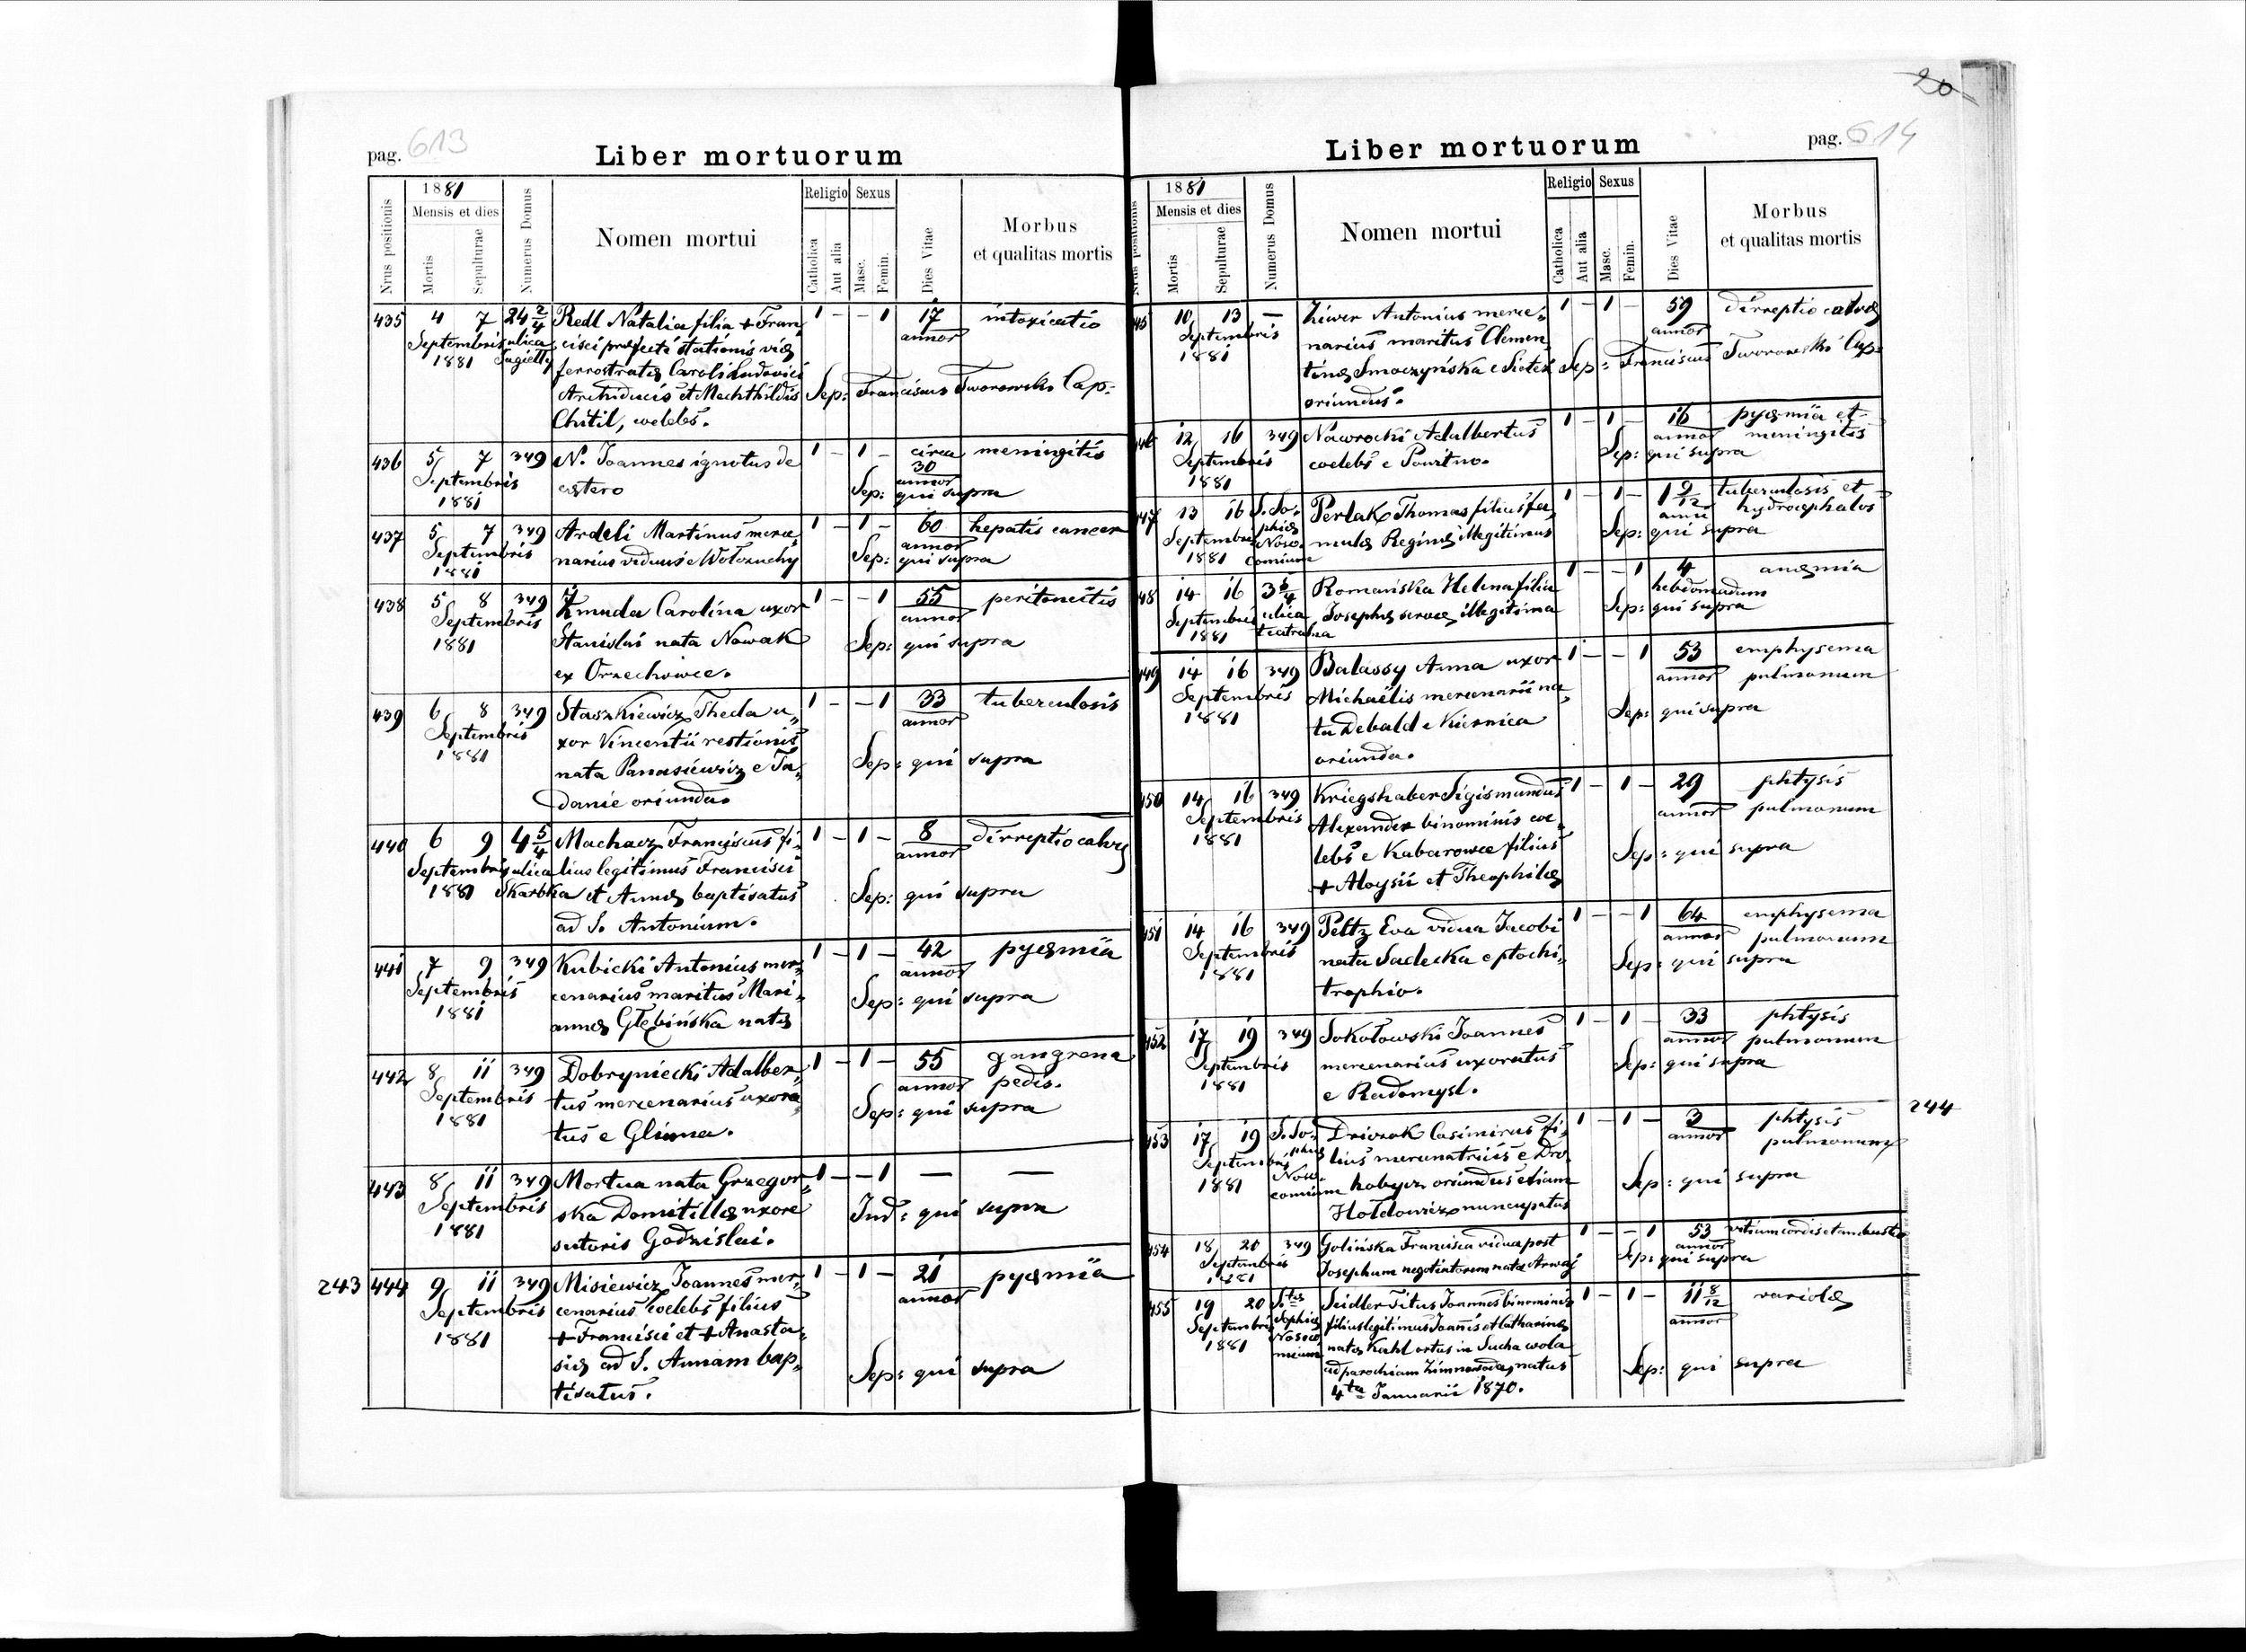 20
pag. 613
Liber mortuorum
Nrus positionis
1881
Mensis et dies
Mortis
Sepulturae
Numerus Domus
Nomen mortui
Religio
Catholica
Aut alia
Sexus
Masc.
Femin.
Dies Vitae
Morbus
et qualitas mortis
435 4 7 24 2/4 Redl Natalia filia + Fran 1 - - 1 17 intoxicatio
Septembris ulica cisci praefecti stationis viæ annor
1881 Jagielly ferrostratæ Caroli Ludovici
Archiducis et Mechthildis Sep: Franciscus Tworowski Cap:
Chitil, coelebs.
436 5 7 349 N. Joannes ignotus de 1 - 1 - circa meningitis
Septembris cætero 30
1881 annor
Sep: qui supra
437 5 7 349 Ardeli Martinus merce 1 - 1 - 60 hepatis cancer
Septembris narius viduus e Wołczuchy annor
1881 Sep: qui supra
438 5 8 349 Żmuda Carolina uxor 1 - - 1 55 peritoneitis
Septembris Stanislai nata Nowak annor
1881 ex Orzechowice. Sep: qui supra
439 6 8 349 Staszkiewicz Thecla u 1 - - 1 33 tuberculosis
Septembris xor Vincentii restionis annor
1881 nata Panasiewicz e Ta
danie oriunda. Sep: qui supra
440 6 9 4 5/4 Machacz Franciscus fi 1 - 1 - 8 dirreptio calvæ
Septembris ulica lius legitimus Francisci annor
1881 Skarbka et Annæ baptisatus Sep: qui supra
ad S. Antonium.
441 7 9 349 Kubicki Antonius mer 1 - 1 - 42 pyæmia
Septembris cenarius maritus Mari annor
1881 annæ Głębińska natæ Sep: qui supra
442 8 11 349 Dobryniecki Adalber 1 - 1 - 55 gangrena
Septembris tus mercenarius uxora annor pedis.
1881 tus e Glinna. Sep: qui supra
443 8 11 349 Mortua nata Grzegor 1 - - 1 — —
Septembris ska Domitillæ uxore
1881 sutoris Godzislai. Ind: qui supra
243 444 9 11 349 Misiewicz Joannes mer 1 - 1 - 21 pyæmia
Septembris cenarius coelebs filius annor
1881 + Francisci et + Anasta
siæ ad S. Annam bap Sep: qui supra
tisatus.
pag. 614
Liber mortuorum
Nrus positionis
1881
Mensis et dies
Mortis
Sepulturae
Numerus Domus
Nomen mortui
Religio
Catholica
Aut alia
Sexus
Masc.
Femin.
Dies Vitae
Morbus
et qualitas mortis
45 10 13 — Antonius merce 1 - 1 - 59 dirreptio calvæ
Septembris narius maritus Clemen annor
1881 tinæ Smoczyńska e Sep: Franciscus Tworowski Cap:
oriundus.
446 12 16 349 Nawrocki Adalbertus 1 - 1 - 16 pyæmia et
Septembris coelebs e Powitno. annor meningitis
1881 Sep: qui supra
447 13 16 S. So Perlak Thomas filius fa 1 - 1 - 1 9/12 tuberculosis et
Septembris phiæ mulæ Reginæ illegitimus anni hydrocephalus
1881 Noso Sep: qui supra
comium
48 14 16 3 6/4 Romańska Helena filia 1 - - 1 4 anæmia
Septembris ulica Josephæ servæ illegitima hebdomadum
1881 teatralna Sep: qui supra
449 14 16 349 Balassy Anna uxor 1 - - 1 53 emphysema
Septembris Michaëlis mercenarii na annor pulmonum
1881 ta Debald e Kiernica Sep: qui supra
oriunda.
450 14 16 349 Kriegshaber Sigismundus 1 - 1 - 29 phtysis
Septembris Alexander binominis coe annor pulmonum
1881 lebs e Kabarowce filius Sep: qui supra
+ Aloysii et Theophilæ
451 14 16 349 Peltz Eva vidua Jacobi 1 - - 1 64 emphysema
Septembris nata Sadecka e ptochi annor pulmonum
1881 trophio. Sep: qui supra
452 17 19 349 Sokołowski Joannes 1 - 1 - 33 phtysis
Septembris mercenarius uxoratus annor pulmonum
1881 e Radomysl. Sep: qui supra
453 17 19 S. So Casimirus fi 1 - 1 - 3 phtysis 244
Septembris phiæ lius mercenatricis e Dro annor pulmonum
1881 Noso hobycz oriundus etiam
comium Hołdowicz nuncupatus Sep: qui supra
454 18 20 349 Golińska Francisca vidua post 1 - - 1 53 vitium cordis et
Septembris Josephum negotiatorem nata annor
1881 Sep: qui supra
455 19 20 S.tæ Seidler Titus Joannes binominis 1 - 1 - 11 8/12 variolæ
Septembris Sophiæ filius legitimus Joannis et Catharinæ annor
1881 Nosoco natæ Kahl ortus in Sucha wola
mium ad parochiam Zimnawoda, natus Sep: qui supra
4ta Januarii 1870.